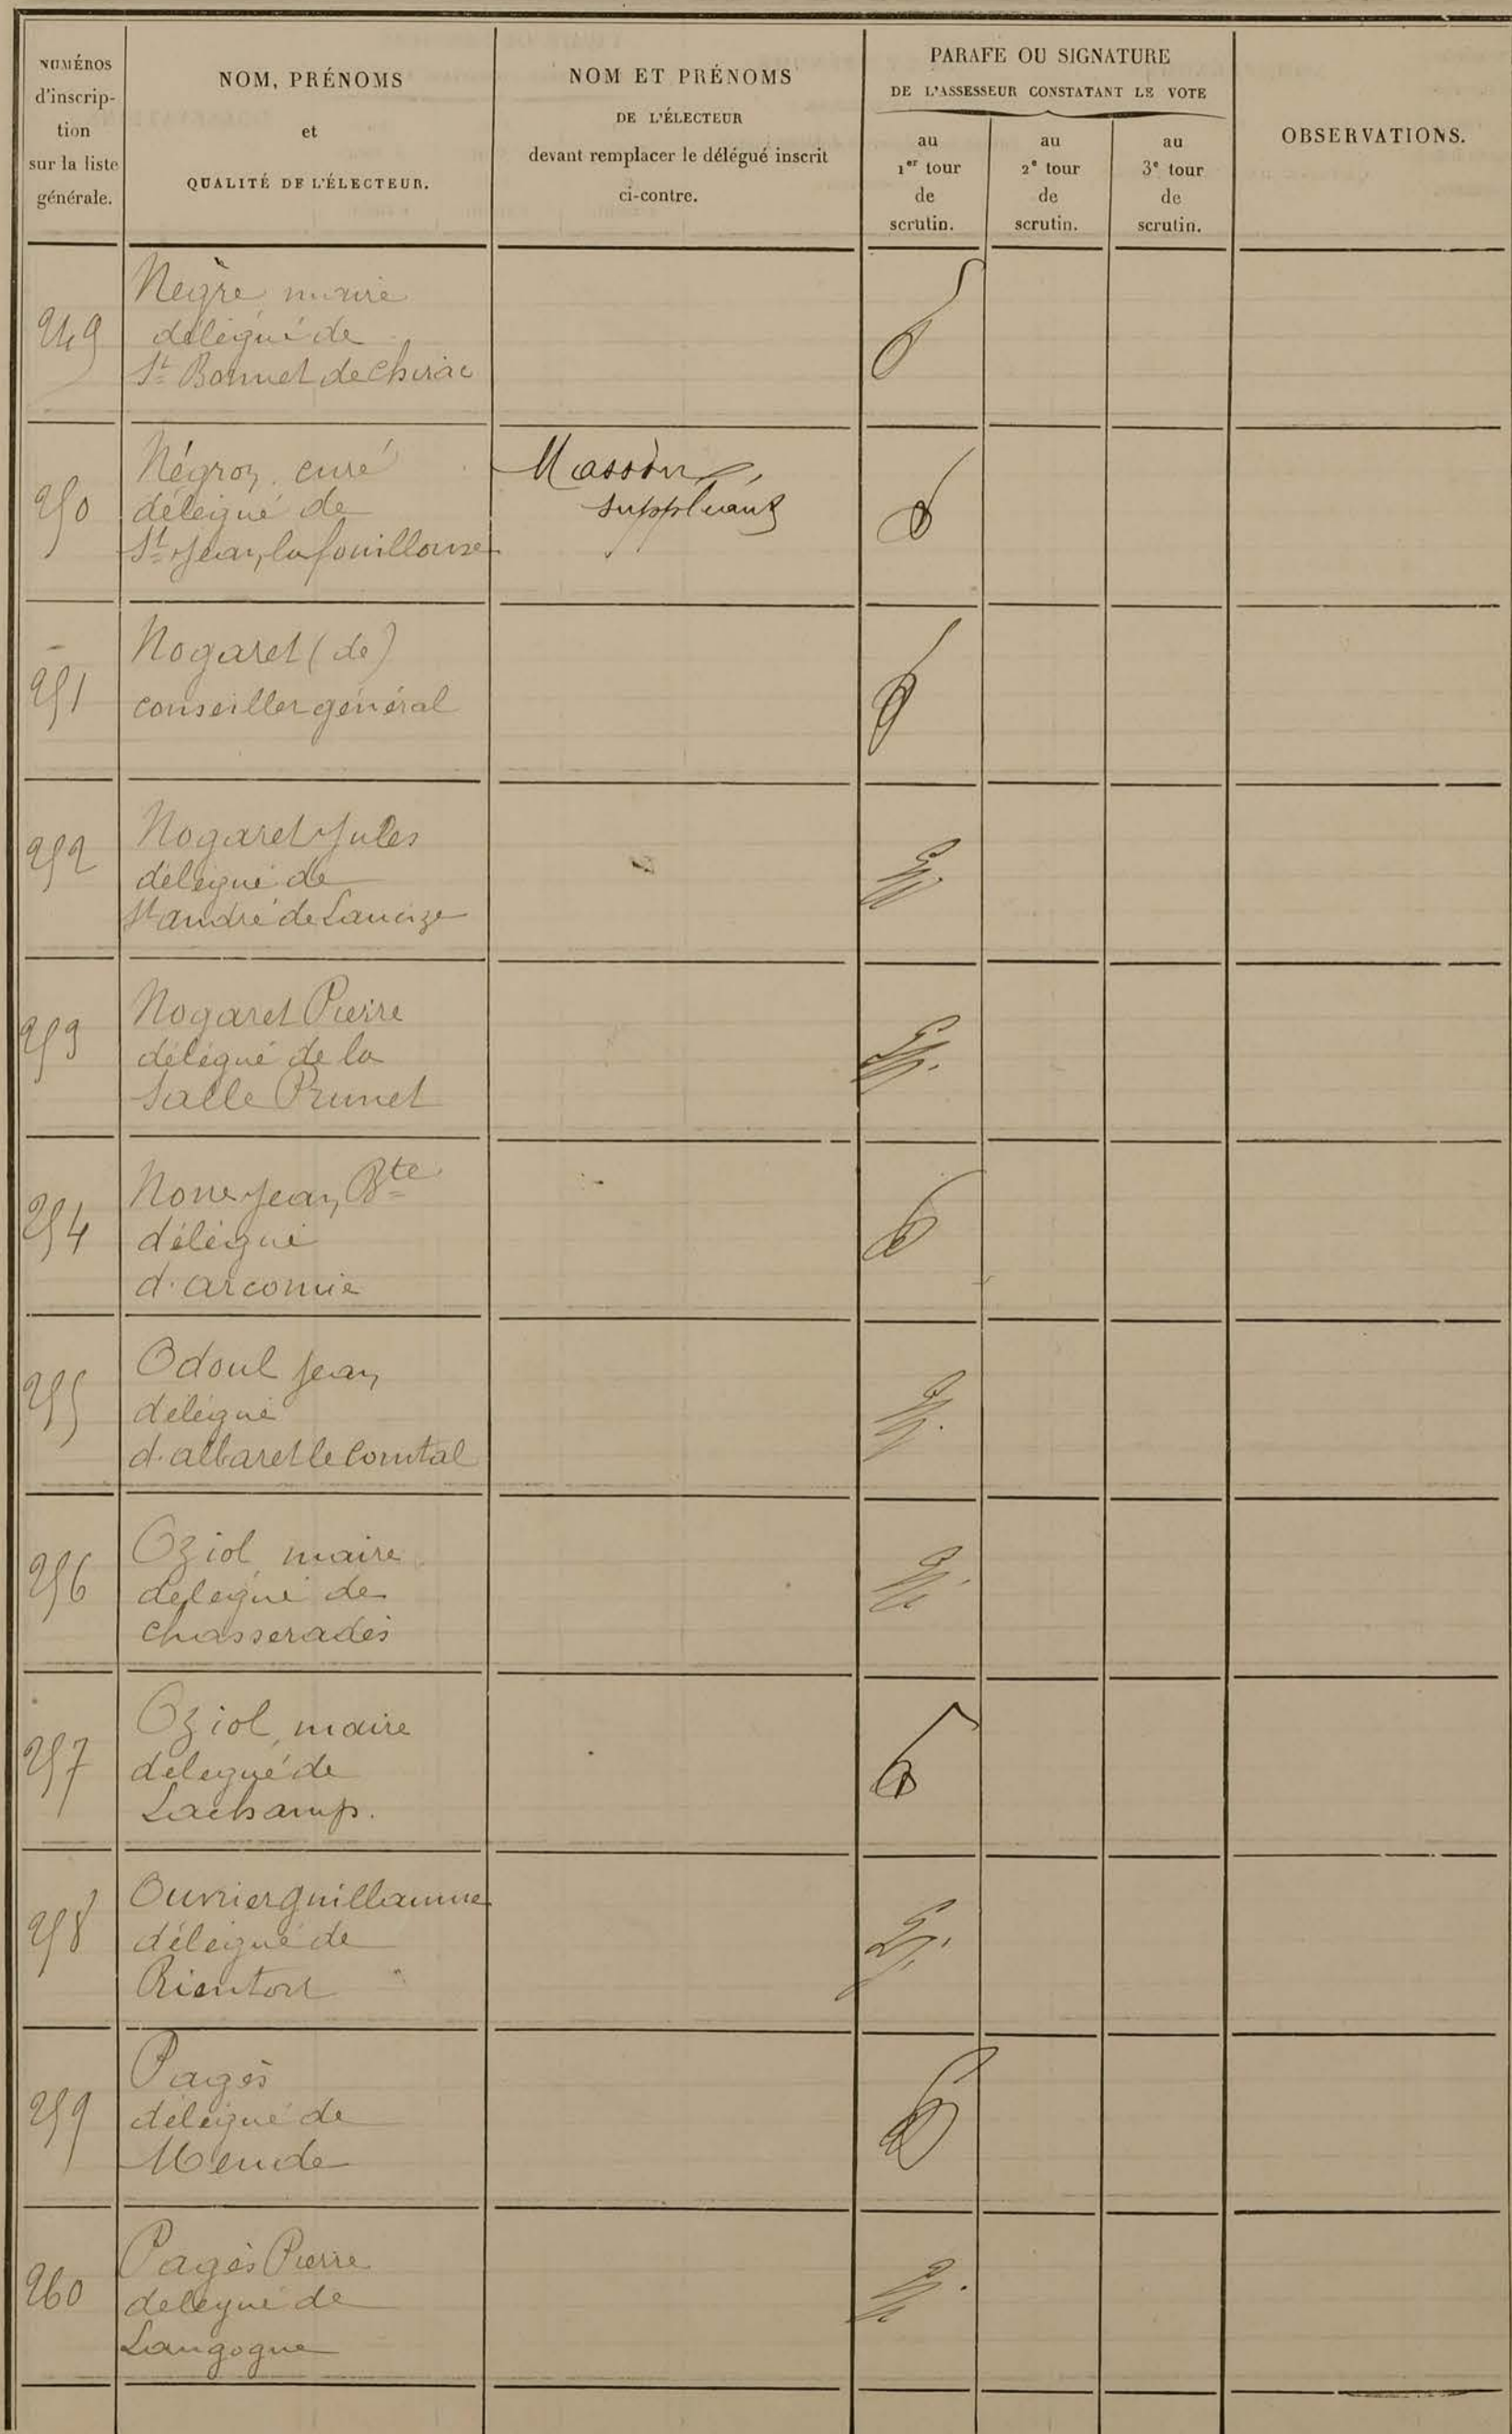 NUMÉROS
d'inscrip-
tion
sur la liste
générale.
NOM, PRÉNOMS
et
QUALITÉ DE L'ÉLECTEUR.
NOM ET PRÉNOMS
DE L'ÉLECTEUR
devant remplacer le délégué inscrit
ci-contre.
PARAFE OU SIGNATURE
DE L'ASSESSEUR CONSTATANT LE VOTE
au
1er tour
de
scrutin.
au
2e tour
de
scrutin.
au
3e tour
de
scrutin.
OBSERVATIONS.
249
Nègre maire
délégué de
St Bonnet de Chirac
250
Négron, curé
délégué de
St Jean la fouillouse
Masson,
suppléant
251
Nogaret (de)
conseiller général
252
Nogaret Jules
délégué de
St andré de Lancize
253
Nogaret Pierre
délégué de la
Salle Prunet
254
Jean Bte
délégué
d'arcomie
255
Odoul Jean
délégué
d'albaret le Comtal
256
Oziol, maire
délégué de
chasseradès
257
Oziol, maire
délégué de
Lachamp.
258
Ouvrier Guillaume
délégué de
Rieutort
259
Pagès
délégué de
Mende
260
Pagès Pierre
délégué de
Langogne